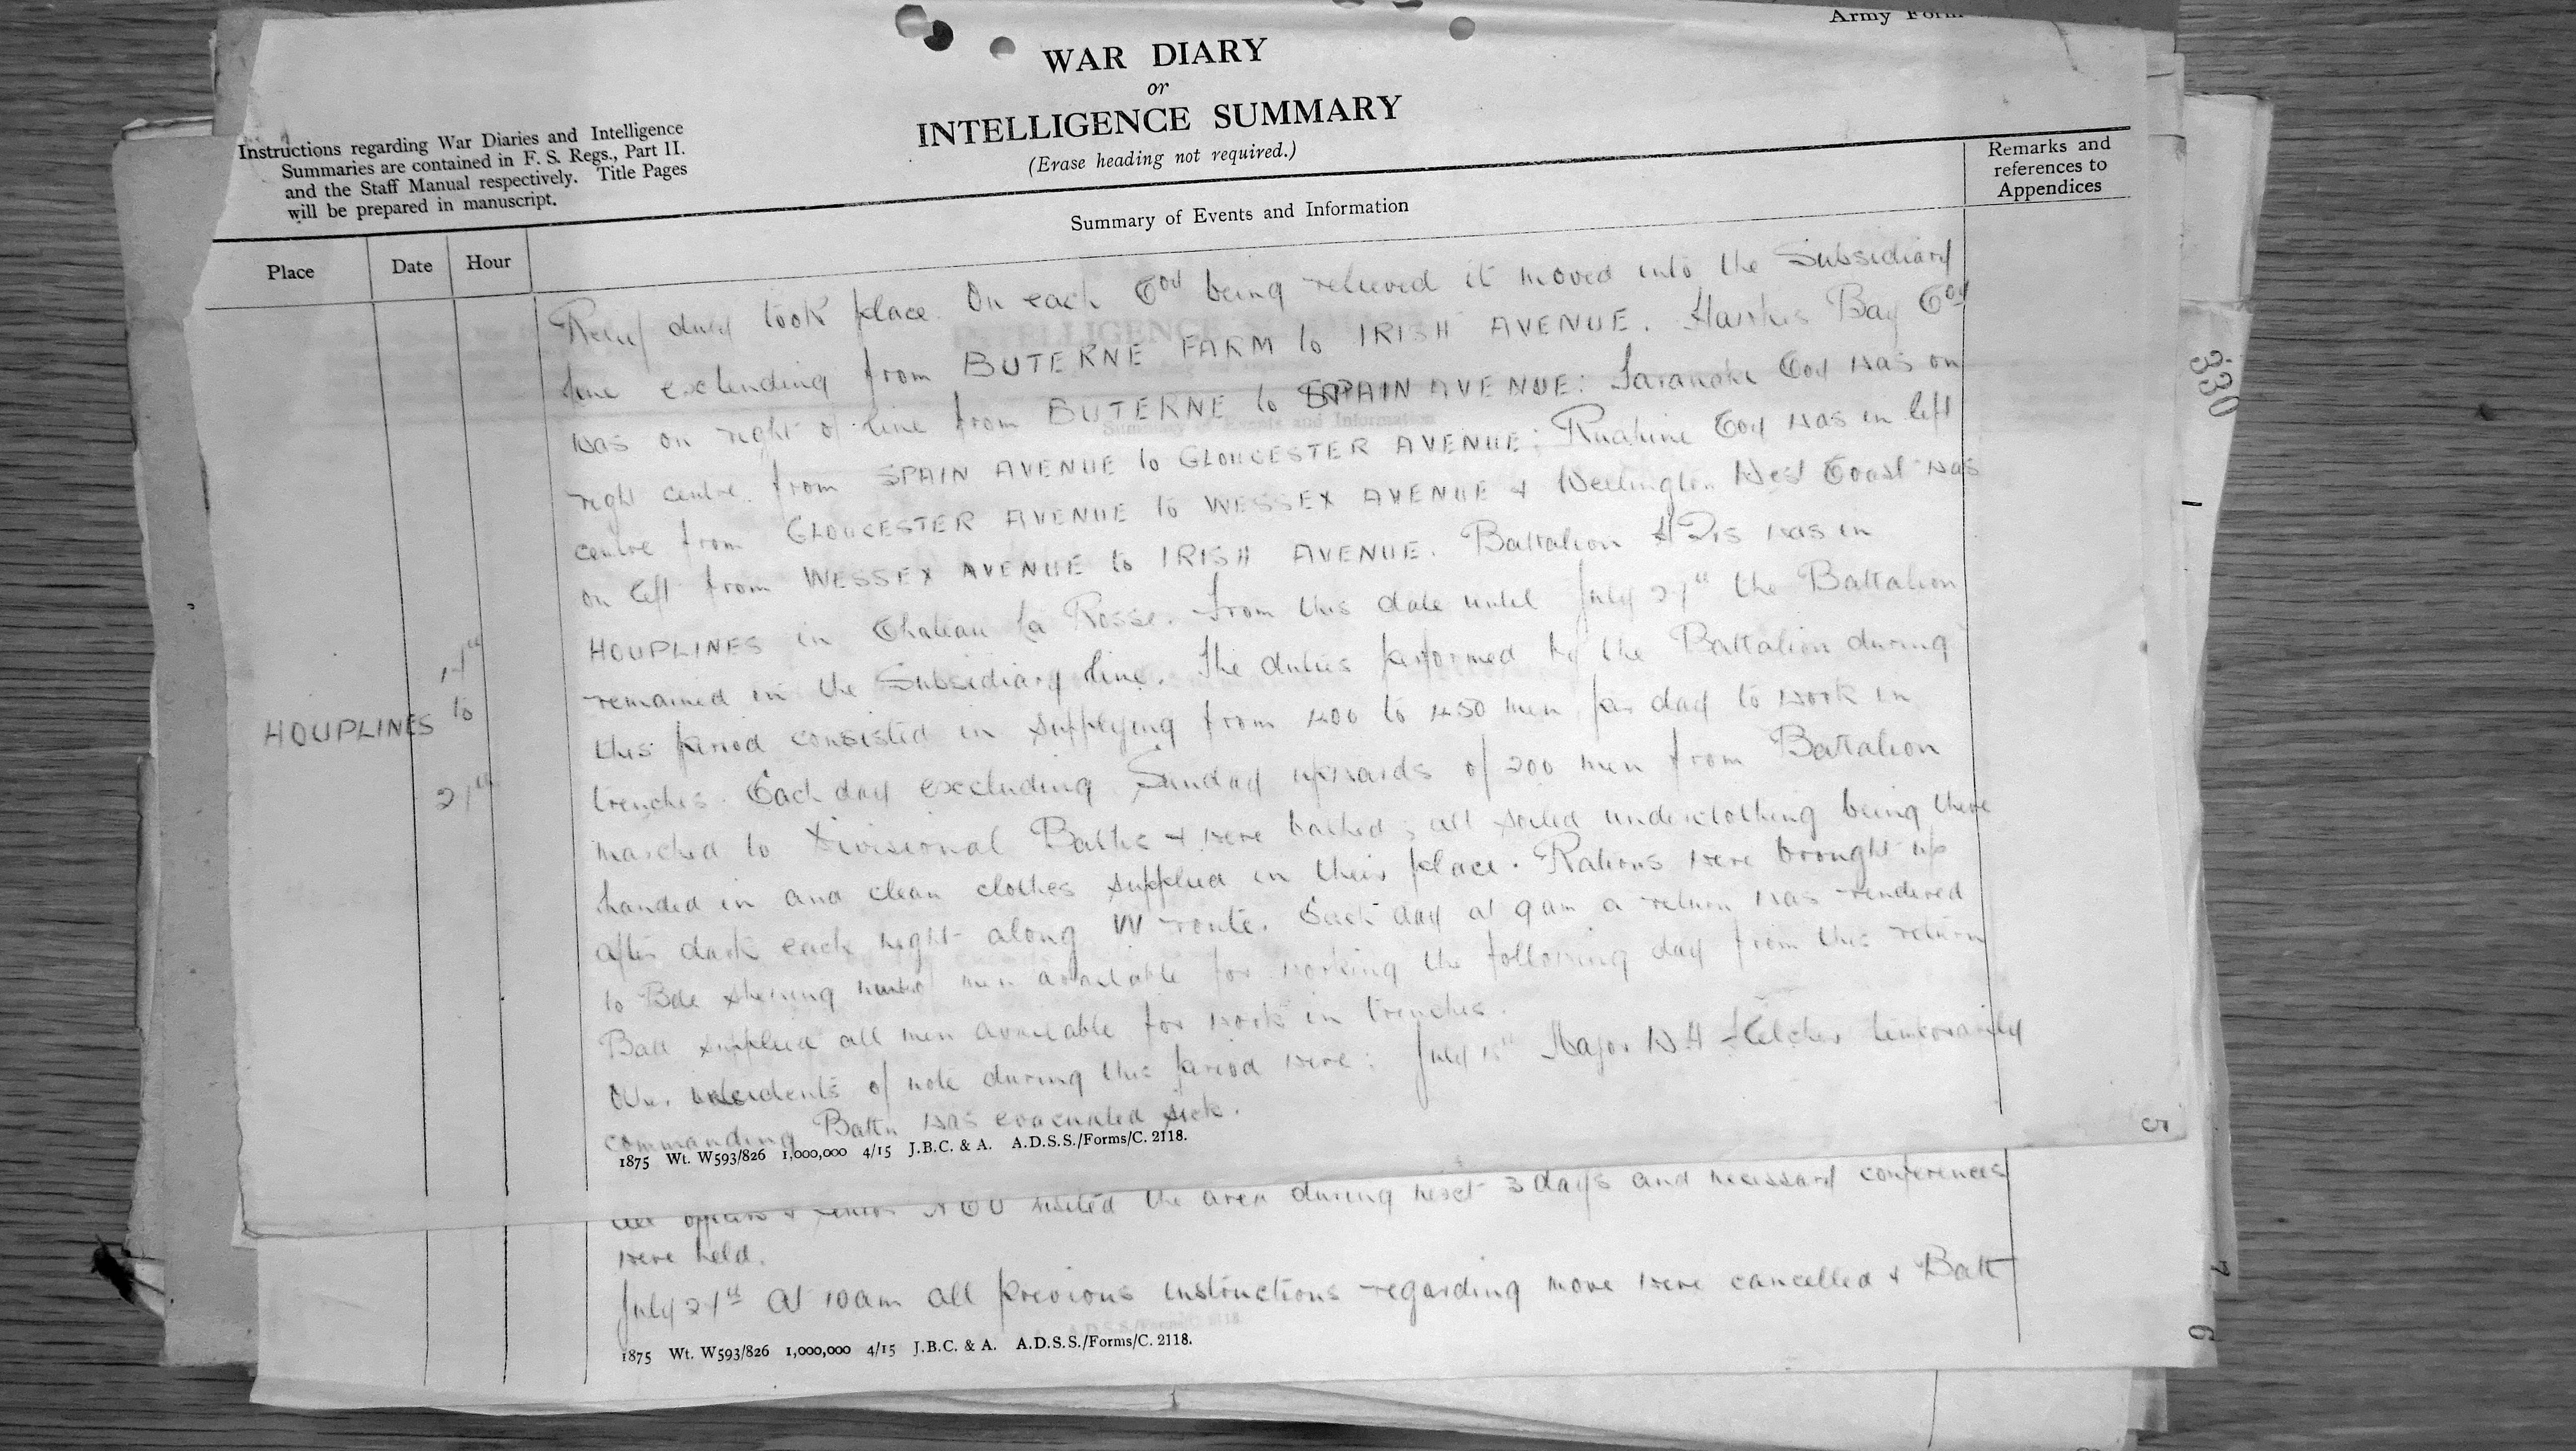 Army Form
WAR DIARY
or
INTELLIGENCE SUMMARY
(Erase heading not required.)
Instructions regarding War Diaries and Intelligence
Summaries are contained in F. S. Regs., Part II.
and the Staff Manual respectively. Title Pages
will be prepared in manuscript.
Remarks and
references to
Appendices
Summary of Events and Information
Place Date Hour
Relief duly took place. On each Coy being relieved it moved into the Subsidiary
line extending from BUTERNE FARM to IRISH AVENUE. Hawkes Bay Coy
was on right of line from BUTERNE to SPAIN AVENUE: Taranaki Coy was on
right centre. from SPAIN AVENUE to GLOUCESTER AVENUE: Ruahine Coy was in left
centre from GLOUCESTER AVENUE to WESSEX AVENUE & Wellington West Coast was
on left from WESSEX AVENUE to IRISH AVENUE. Battalion HQrs was in
HOUPLINES in Chateau La Rosse. From this date until July the Battalion
remained in the Subsidiary line. The duties performed by the Battalion during
this period consisted in supplying from 400 to 450 men per day to work in
trenches. Each day excluding Sunday upwards of 200 men from Battalion
marched to Divisional Baths & were bathed; all soiled underclothing being there
handed in and clean clothes supplied in their place. Rations were brought up
after dark each night along W route. Each day at 9 am a return was rendered
to Bde shewing men available for working the following day from this return
Batt supplied all men available for work in trenches.
of note during this period were: July Major W.H Fletcher temporarily
commanding Battn was evacuated sick.
HOUPLINES to
1875 Wt. W593/826 1,000,000 4/15 J.B.C. & A. A.D.S.S./Forms/C. 2118.
5
All officers & senior NCO visited the area during next 3 days and necessary conferences
were held.
July At 10 am all previous instructions regarding move were cancelled & Batt
1875 Wt. W593/826 1,000,000 4/15 J.B.C. & A. A.D.S.S./Forms/C. 2118.
330
7
6